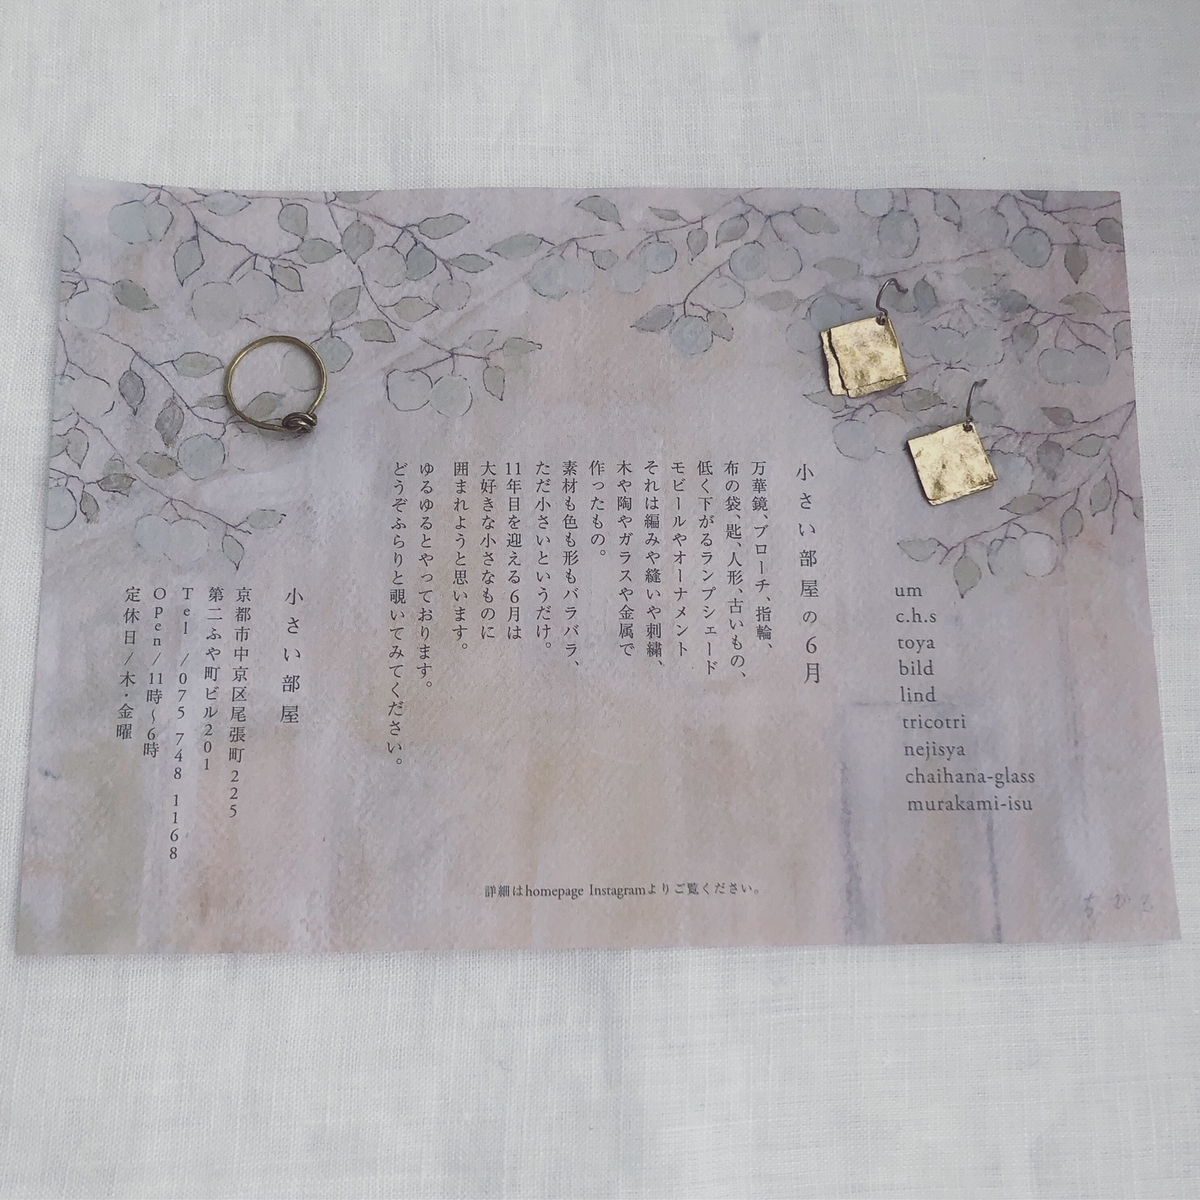 um
c.h.s
toya
bild
lind
tricotri
nejisya
chaihana-glass
murakami-isu
小さい部屋の6月
万華鏡、ブローチ、指輪、
布の袋、匙、人形、古いもの、
低く下がるランプシェード
モビールやオーナメント
それは編みや縫いや刺繍、
木や陶やガラスや金属で
作ったもの。
素材も色も形もバラバラ、
ただ小さいというだけ。
11年目を迎える6月は
大好きな小さなものに
囲まれようと思います。
ゆるゆるとやっております。
どうぞふらりと覗いてみてください。
小さい部屋
京都市中京区尾張町225
第二ふや町ビル201
Tel /075 748 1168
Open/11時〜6時
定休日/木・金曜
詳細はhomepage Instagramよりご覧ください。